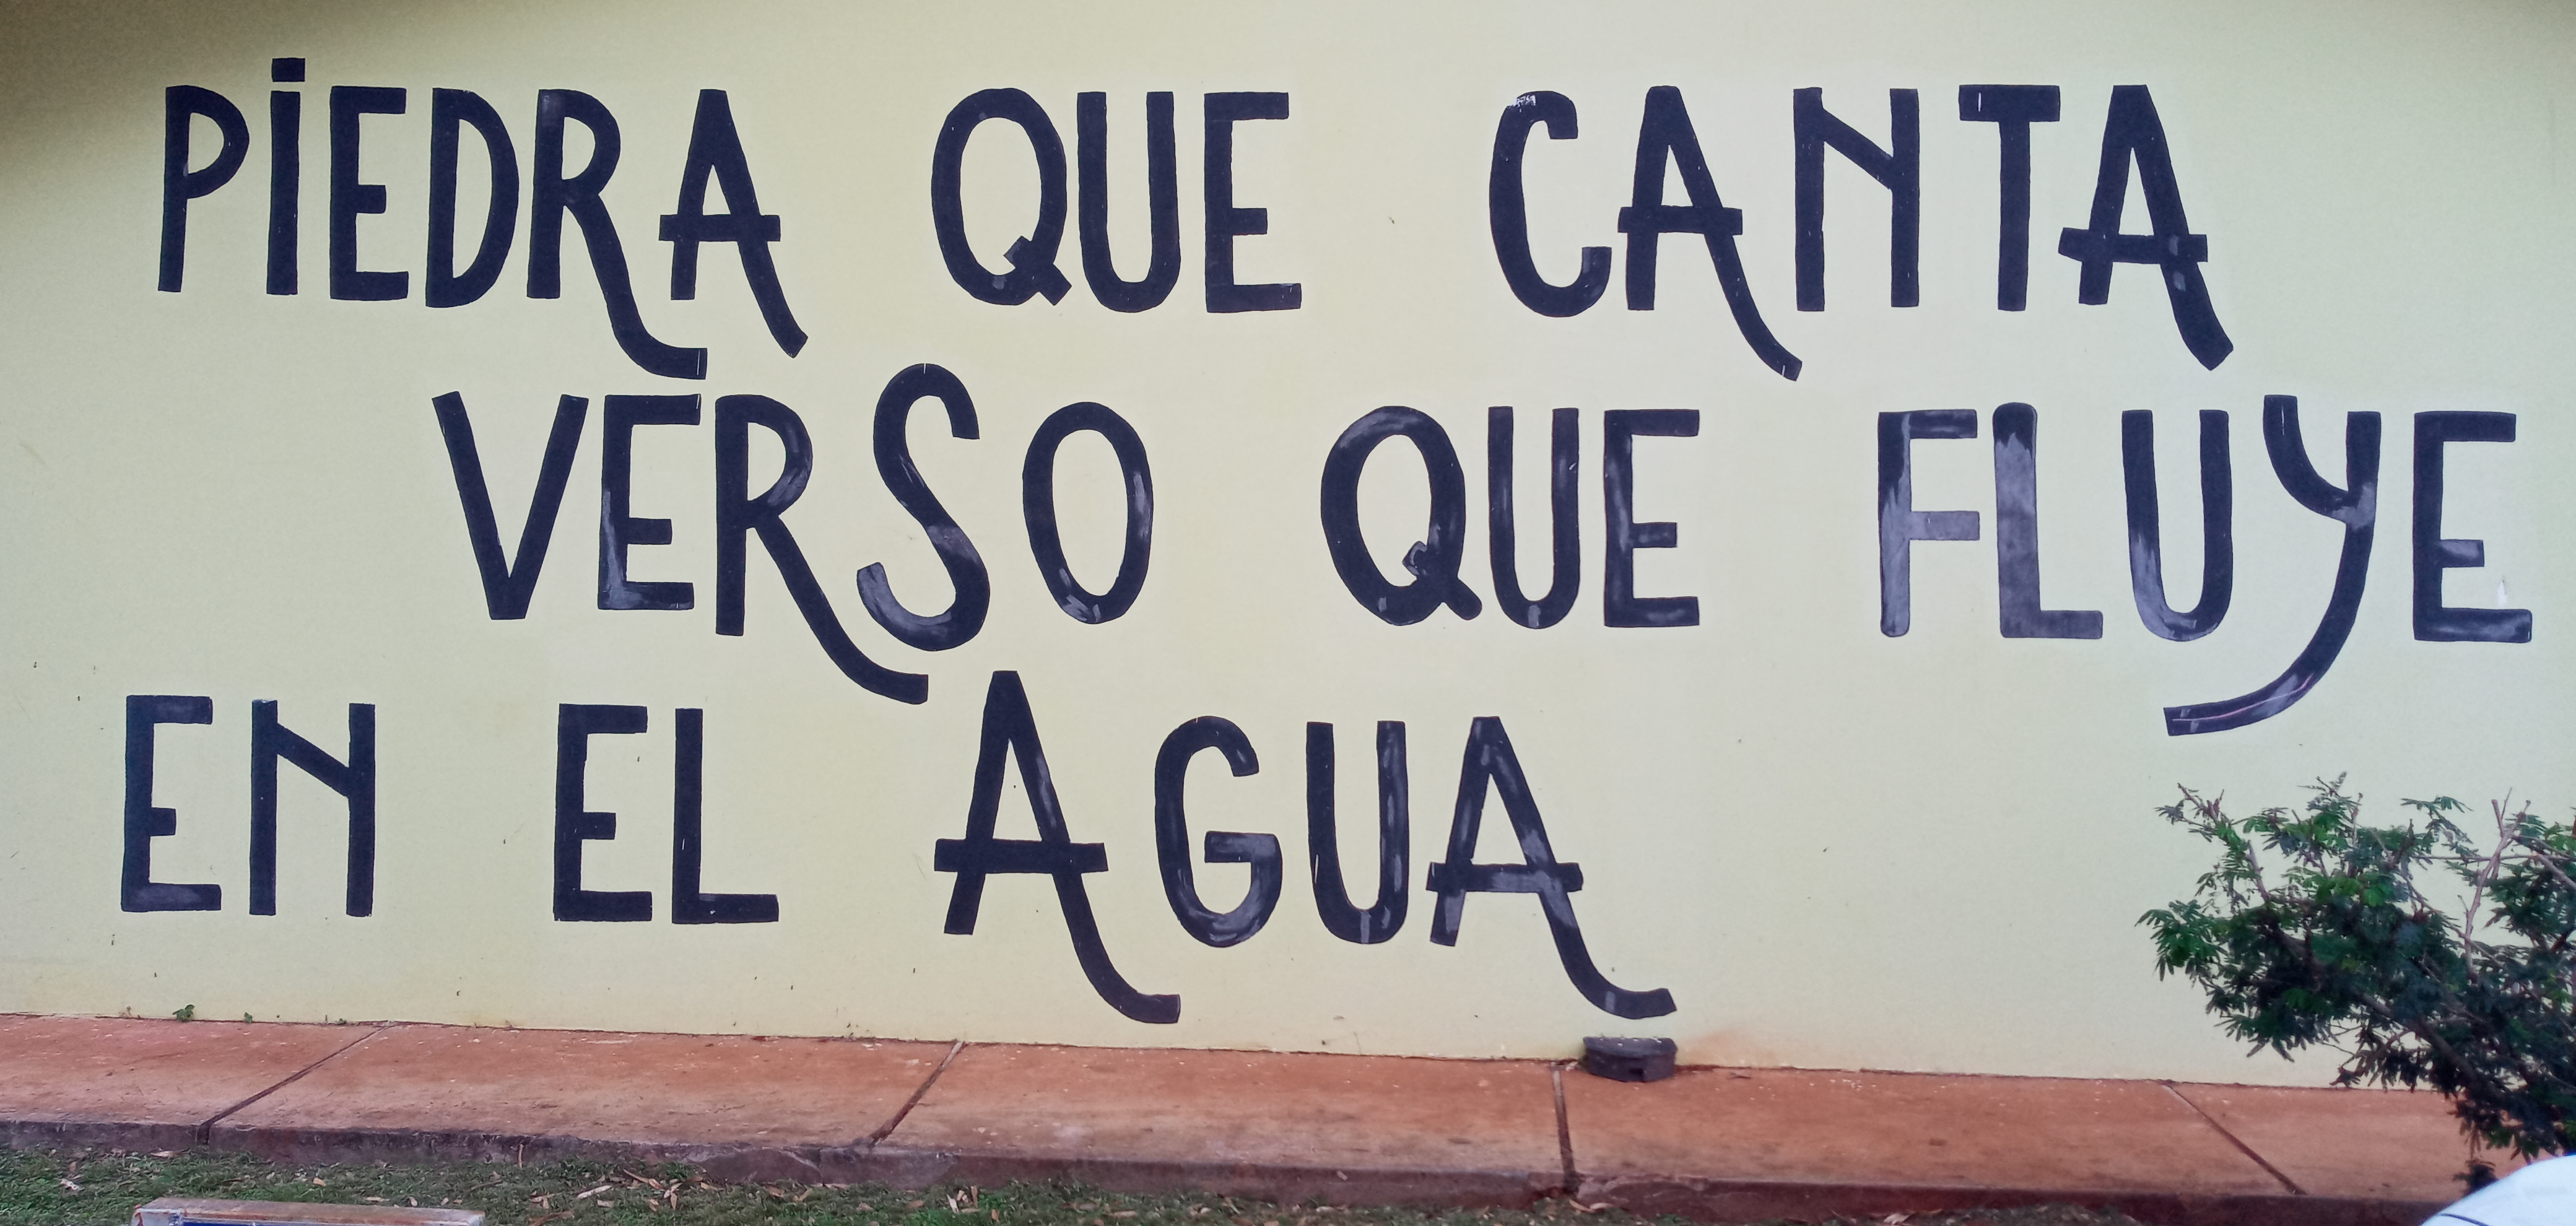 PIEDRA QUE CANTA
VERSO QUE FLUYE
EN EL AGUA